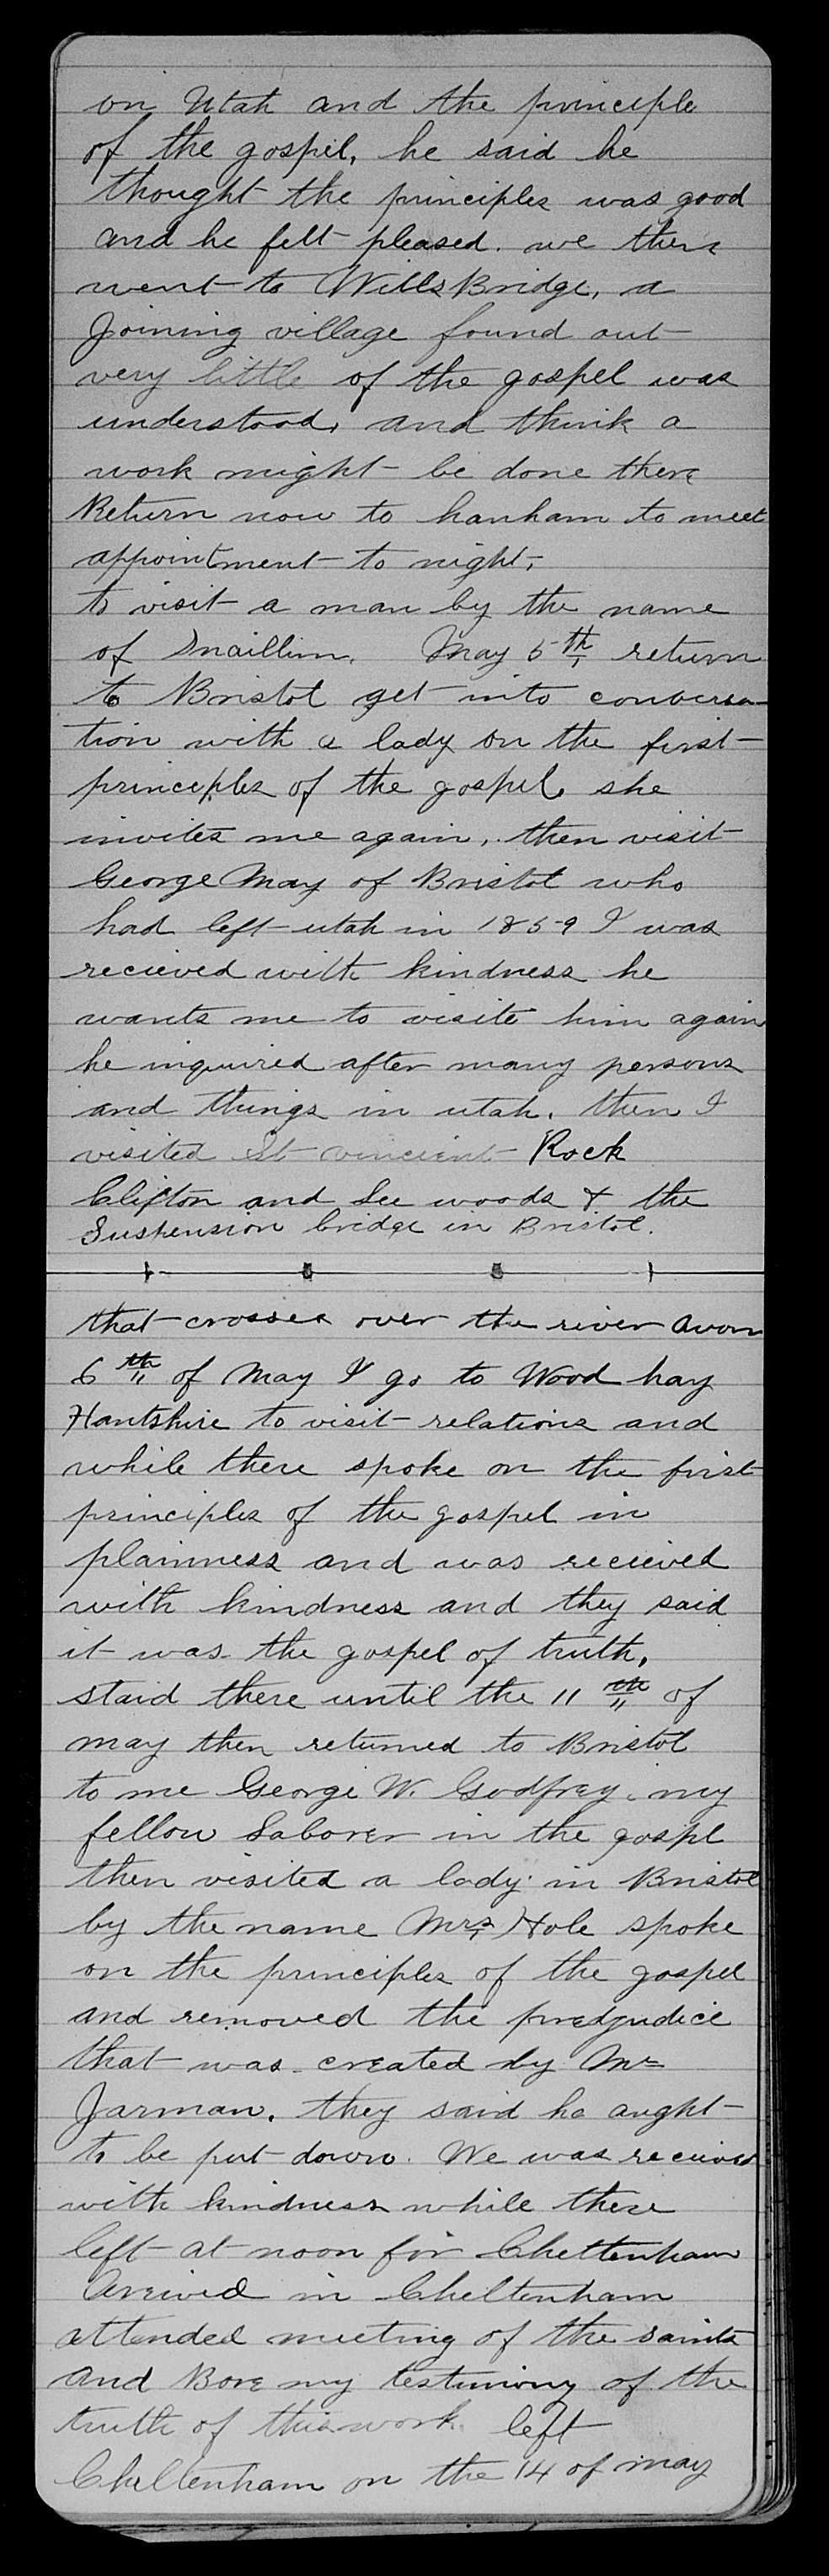 on Utah and the principle
of the gospel, he said he
thought the principles was good
and he felt pleased. we then
went to Wills Bridge, a
Joining village found out
very little of the gospel was
understood, and think a
work might be done there
Return now to hanham to meet
appointment to night,
to visit a man by the name
of May 5th return
to Bristol get into conversa-
tion with a lady on the first
principles of the gospel she
invites me again, then visit
George May of Bristol who
had left utah in 1859 I was
recieved with kindness he
wants me to visite him again
he inquired after many persons
and things in utah. then I
visited St vincient Rock
Clifton and See woods & the
Suspension bridge in Bristol.
that crosses over the river avon
6th of May I go to Wood hay
Hantshire to visit relations and
while there spoke on the first
principles of the gospel in
plainness and was recieved
with kindness and they said
it was the gospel of truth,
staid there until the 11th of
may then returned to Bristol
to me George W. Godfrey, my
fellow Laborer in the gospl
then visited a lady in Bristol
by the name Mrs Hole spoke
on the principles of the gospel
and removed the predjudice
that was created by Mr
Jarman. they said he aught
to be put down. We was recieved
with kindness while there
left at noon for Cheltenham
Arrived in Cheltenham
attended meeting of the saints
and Bore my testimony of the
truth of this work left
Cheltenham on the 14 of may